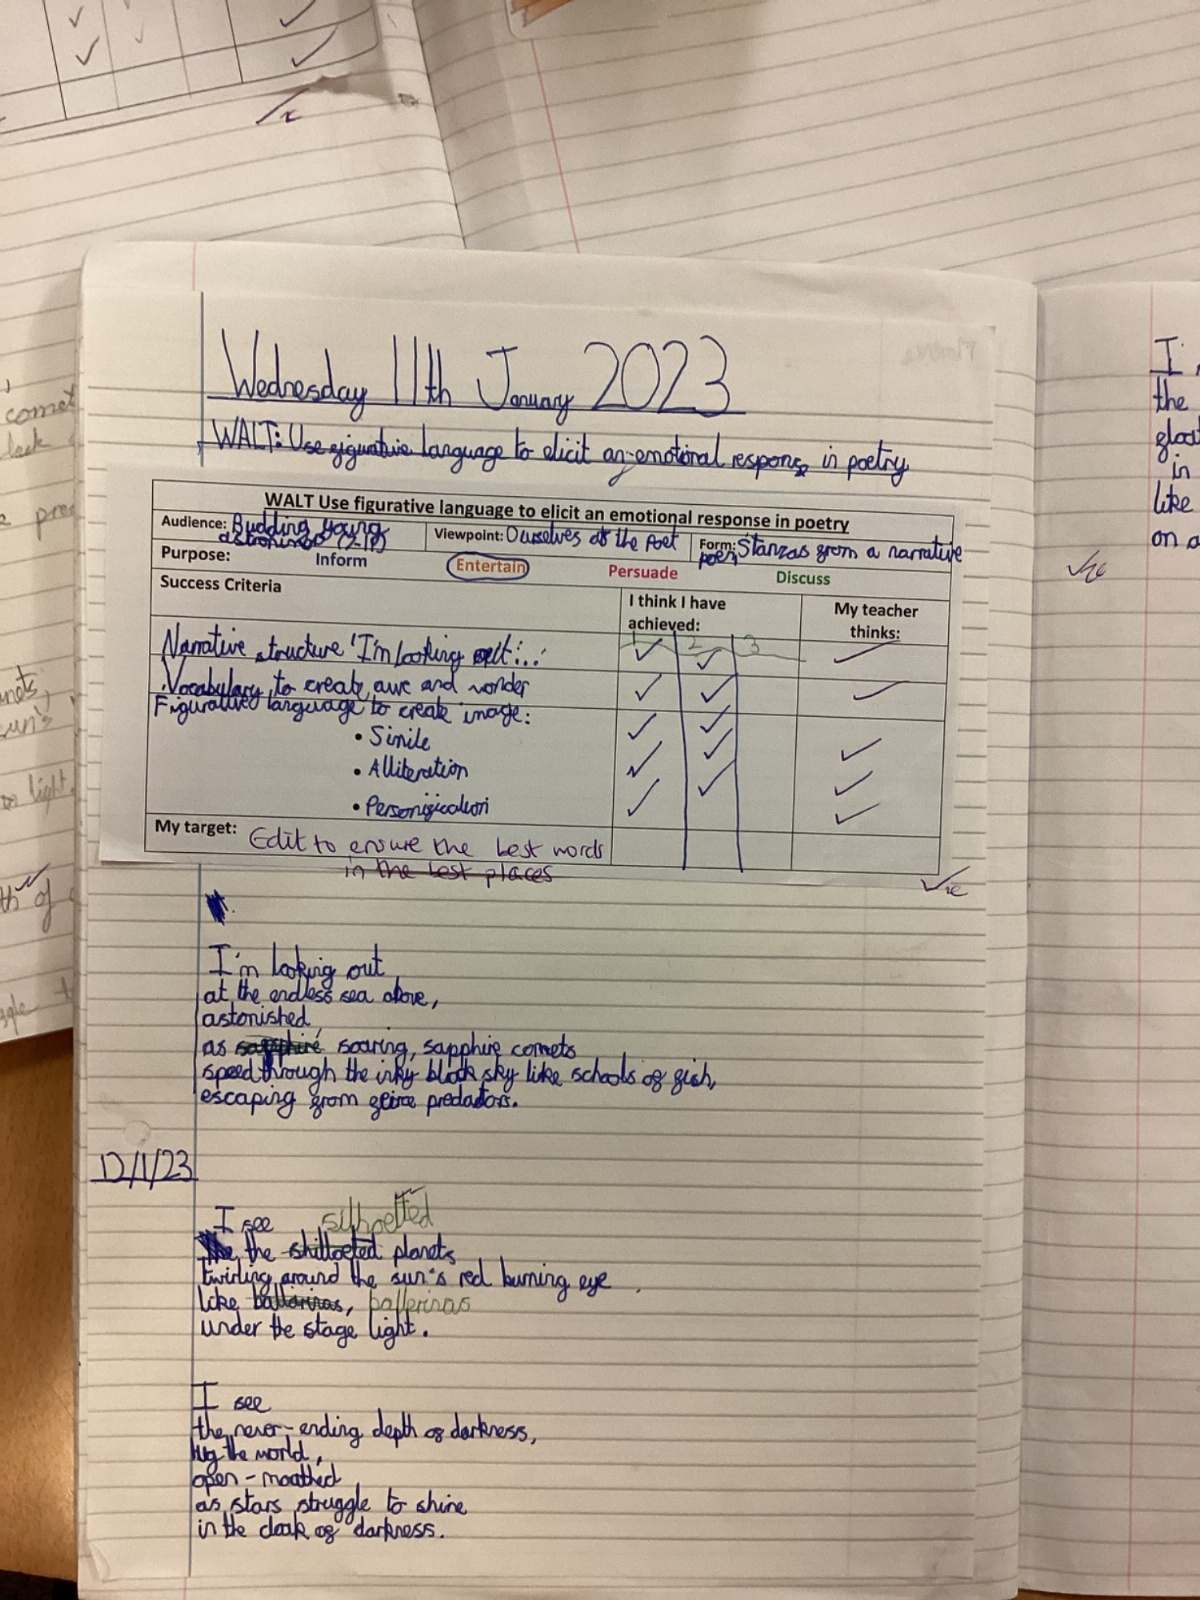 comet
I
the
in
like
on a
Wednesday 11th January 2023
WALT: Use figurative language to elicit an emotional respons in poetry
WALT Use figurative language to elicit an emotional response in poetry
Audience: Budding young
Viewpoint: Ourselves as the poet
Form: Stanzas from a narrative
poem
Purpose: Inform Entertain Persuade Discuss
Success Criteria
I think I have
achieved:
My teacher
thinks:
2 3
Narrative structure 'I'm looking out...'
Vocabulary to create awe and wonder
Figurative language to create image:
• Simile
• Alliteration
• Personification
My target: Edit to ensure the best words
in the best places
I'm looking out
at the endless sea above,
astonished,
as sapphire soaring, sapphire comets
speed through the inky black sky like schools of fish,
escaping from predators.
12/1/23
I see silhoetted
the shilloeted planets
twirling around the sun's red burning eye
like ballarinas, ballerinas
under the stage light.
I see
the never-ending depth of darkness,
hug the world,
open-mouthed
as stars struggle to shine
in the cloak of darkness.